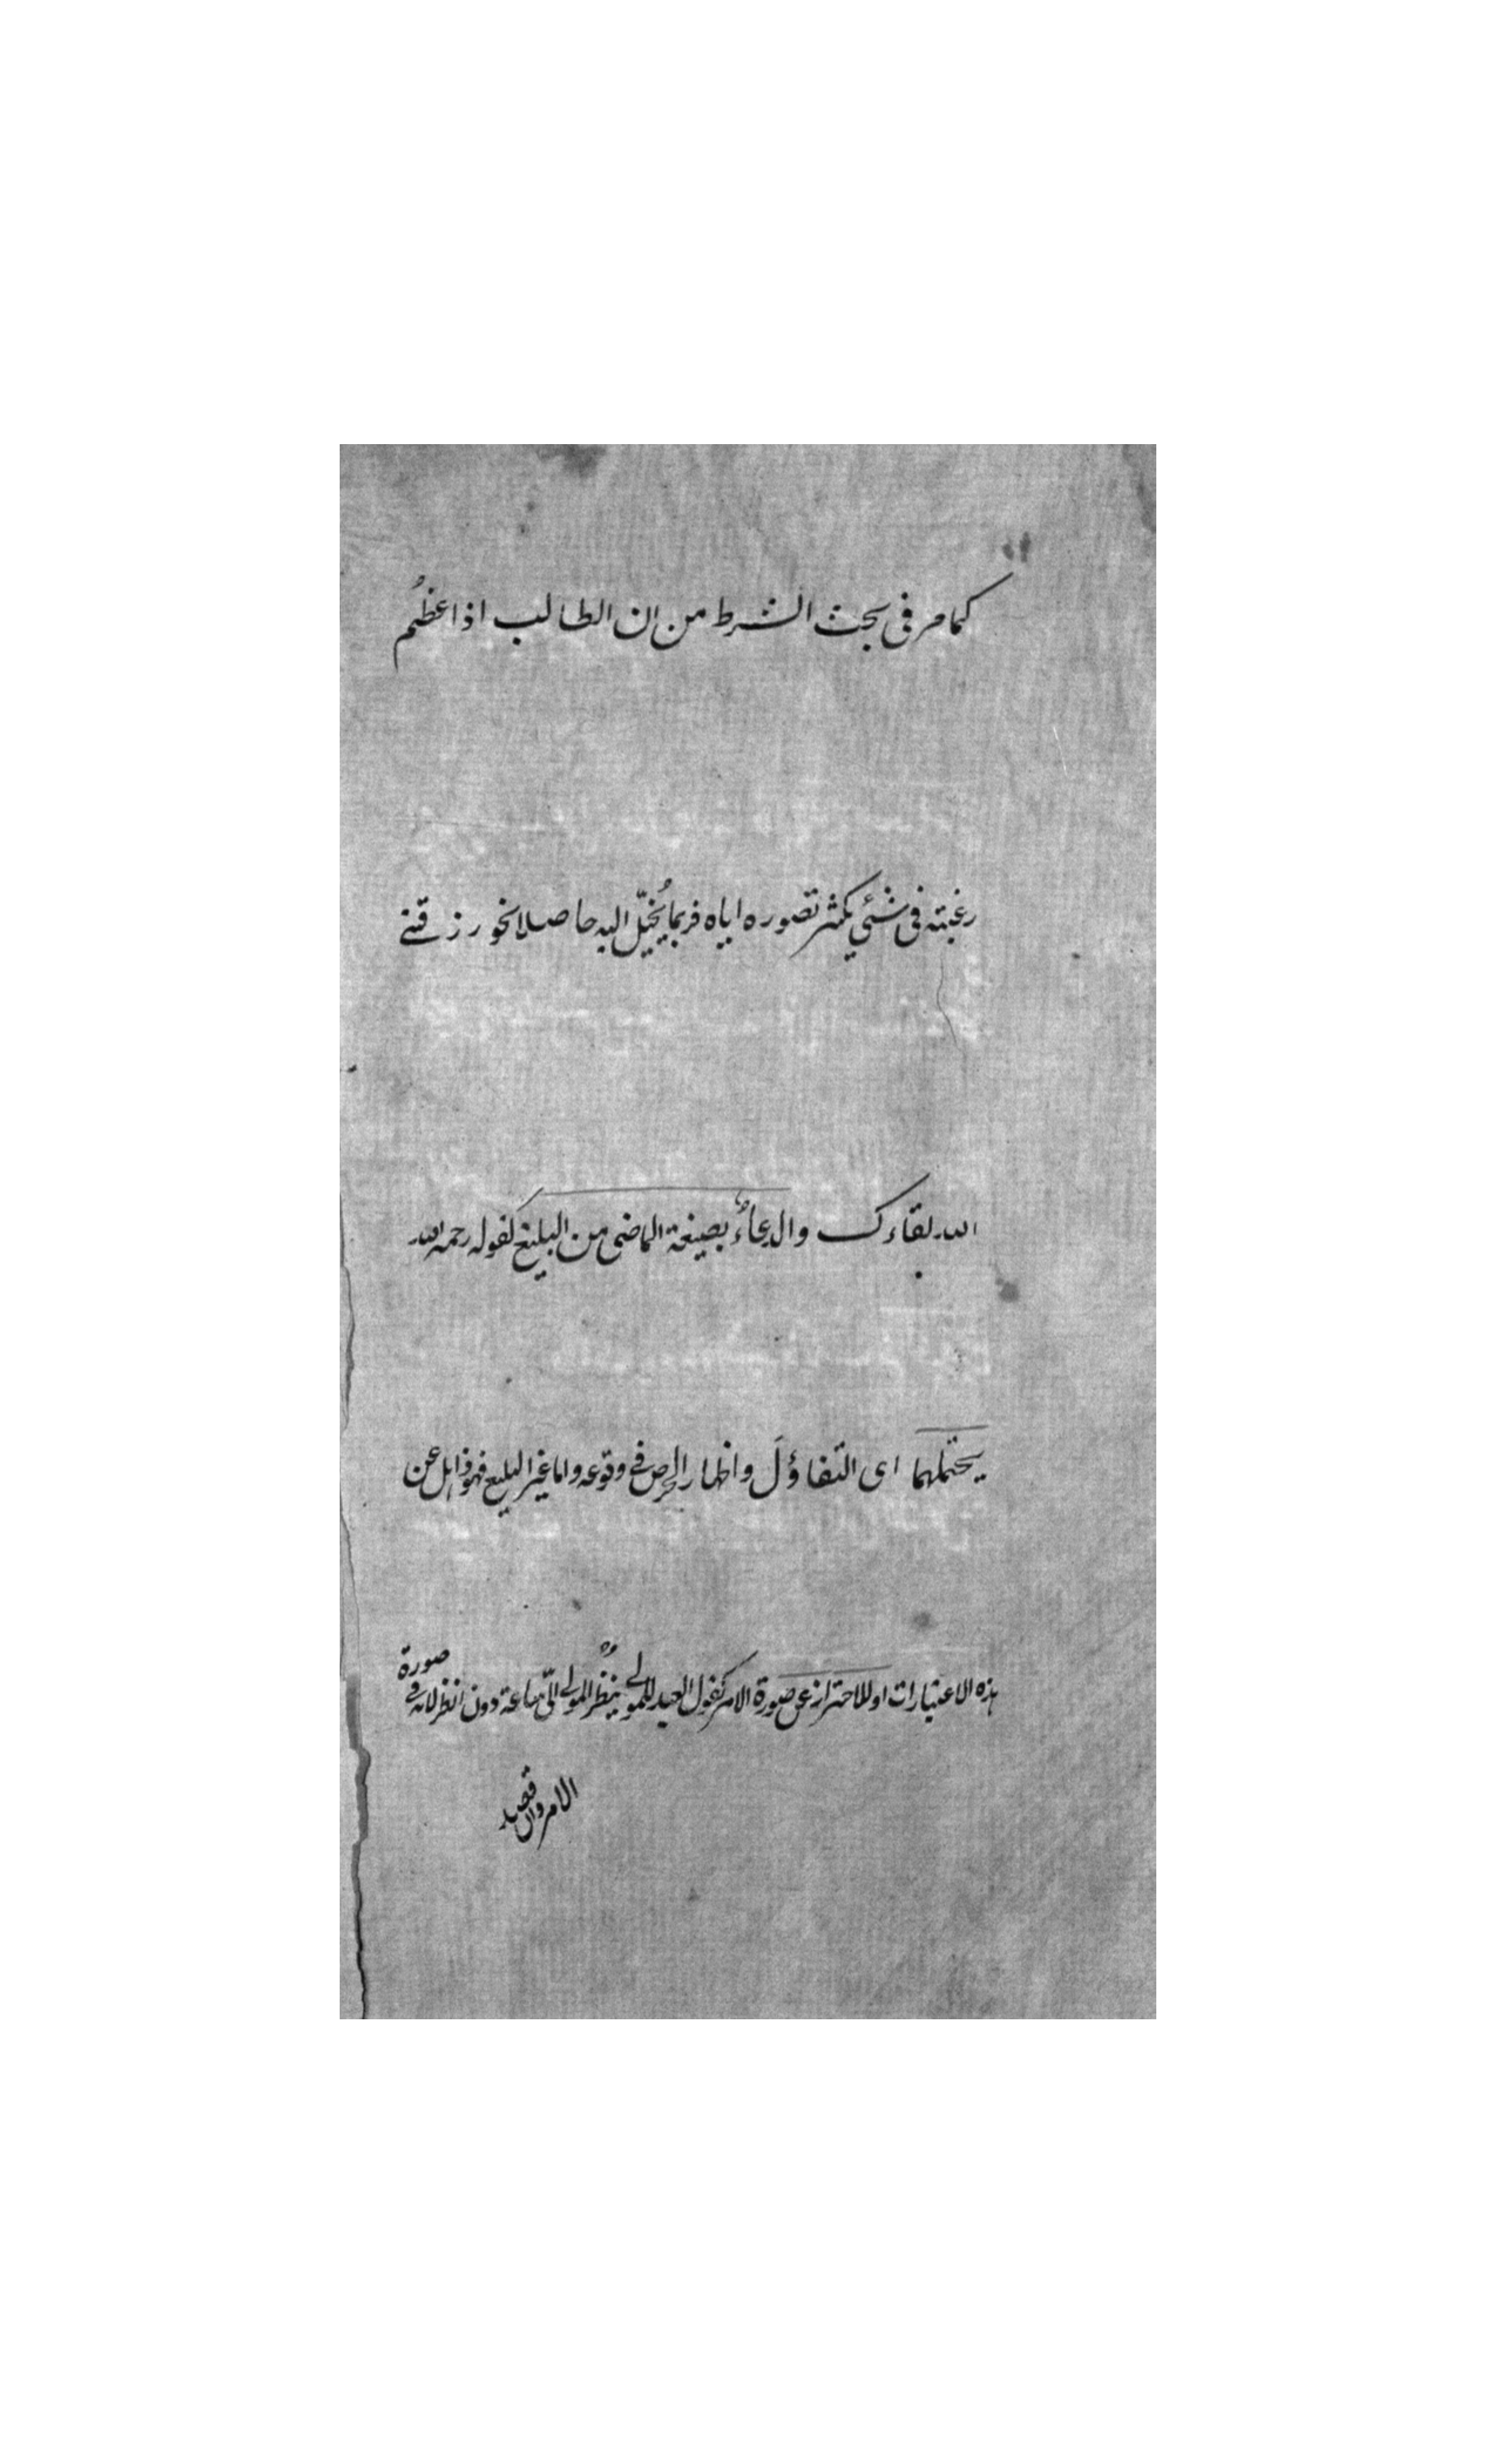 كما مر في بحث الشرط من ان الطالب اذا عظُم
رغبته في شئي يكثر تصوره اياه فربما يُخيّل اليه حاصلا نحو رزقني
الله لقاءك والدعاءُ بصيغة الماضي من البليغ كقوله رحمه الله
يحتملهما اى التفاؤلَ واظهار الحرص في وقوعه واما غير البليغ فهو ذاهل عن
هذه الاعتبارات او للاحتراز عن صورة الامر كقول العبد للمولى ينظُر المولى الىّ ساعة دون انظر لانه في صورة
الامر وان قصد